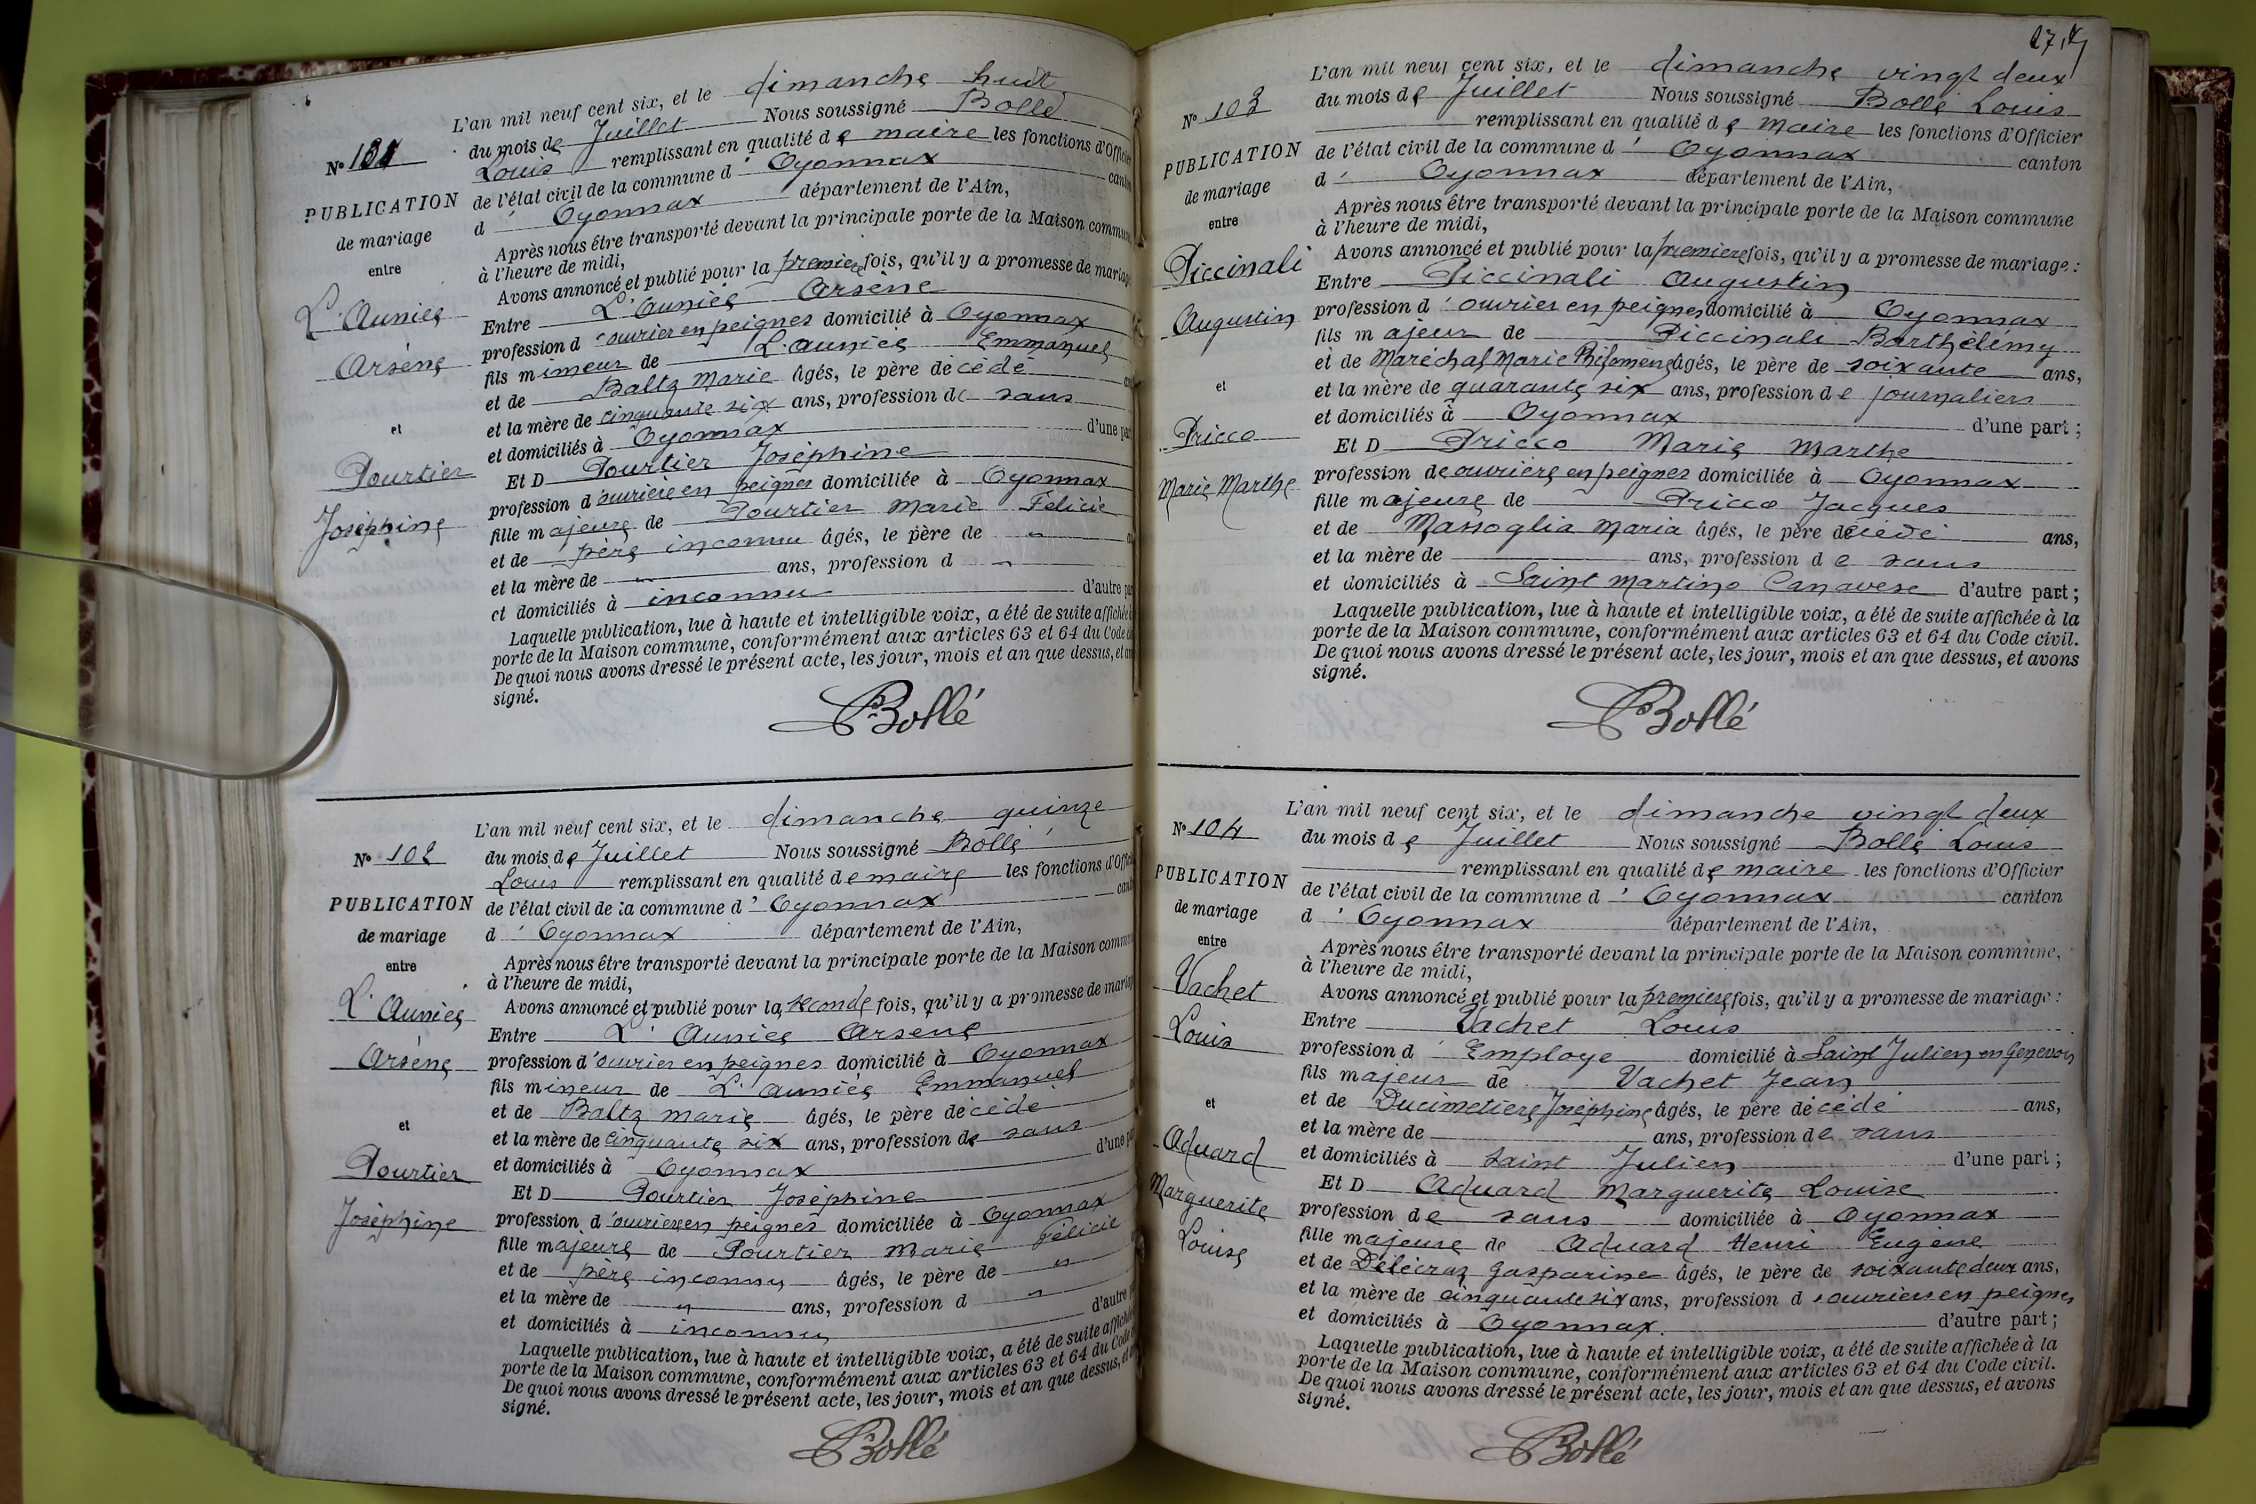 L'an mil neuf cent six, et le dimanche huit
du mois de Juillet Nous soussigné Bollé
Louis remplissant en qualité de maire les fonctions d'Officier
de l'état civil de la commune d' Oyonnax canton
d' Oyonnax département de l'Ain,
Après nous être transporté devant la principale porte de la Maison commune
à l'heure de midi,
Avons annoncé et publié pour la premiere fois, qu'il y a promesse de mariage
Entre L'Aunieg Arsène
profession d'ouvrier en peignes domicilié à Oyonnax
fils mineur de L'auniég Emmanuel
et de Baltz Marie âgés, le père décédé
et la mère de cinquante six ans, profession de sans
et domiciliés à Oyonnax d'une part
Et D Pourtier Joséphine
profession d'ouvrière en peignes domiciliée à Oyonnax
fille majeure de Pourtier Marie Félicie
et de père inconnu âgés, le père de "
et la mère de " ans, profession d "
et domiciliés à inconnu d'autre part
Laquelle publication, lue à haute et intelligible voix, a été de suite affichée
porte de la Maison commune, conformément aux articles 63 et 64 du Code
De quoi nous avons dressé le présent acte, les jour, mois et an que dessus, et
signé.
Bollé
N° 101
PUBLICATION
de mariage
entre
L'Aunieg
Arsène
et
Pourtier
Joséphine
L'an mil neuf cent six, et le dimanche quinze
du mois de Juillet Nous soussigné Bollé
Louis remplissant en qualité de maire les fonctions d'Officier
de l'état civil de la commune d' Oyonnax canton
d' Oyonnax département de l'Ain,
Après nous être transporté devant la principale porte de la Maison commune
à l'heure de midi,
Avons annoncé et publié pour la seconde fois, qu'il y a promesse de mariage
Entre L'Aunieg Arsène
profession d'ouvrier en peignes domicilié à Oyonnax
fils mineur de L'auniég Emmanuel
et de Baltz marie âgés, le père décédé
et la mère de cinquante six ans, profession de sans
et domiciliés à Oyonnax d'une part
Et D Pourtier Joséphine
profession d'ouvrière en peignes domiciliée à Oyonnax
fille majeure de Pourtier Marie Félicie
et de père inconnu âgés, le père de "
et la mère de " ans, profession d "
et domiciliés à inconnu d'autre
Laquelle publication, lue à haute et intelligible voix, a été de suite affichée
porte de la Maison commune, conformément aux articles 63 et 64 du Code
De quoi nous avons dressé le présent acte, les jour, mois et an que dessus, et
signé.
Bollé
N° 102
PUBLICATION
de mariage
entre
L'Aunieg
Arsène
et
Pourtier
Joséphine
L'an mil neuf cent six, et le dimanche vingt deux
du mois de Juillet Nous soussigné Bollé Louis
remplissant en qualité de Maire les fonctions d'Officier
de l'état civil de la commune d' Oyonnax canton
d' Oyonnax département de l'Ain,
Après nous être transporté devant la principale porte de la Maison commune
à l'heure de midi,
Avons annoncé et publié pour la premiere fois, qu'il y a promesse de mariage :
Entre Piccinali Augustin
profession d'ouvrier en peignes domicilié à Oyonnax
fils majeur de Piccinali Barthélémy
et de Maréchal Marie Philomène âgés, le père de soixante ans,
et la mère de quarante six ans, profession de journaliers
et domiciliés à Oyonnax d'une part ;
Et D Pricco Marie Marthe
profession de ouvrière en peignes domiciliée à Oyonnax
fille majeure de Pricco Jacques
et de Massoglia Maria âgés, le père décédé ans,
et la mère de ans, profession de sans
et domiciliés à Saint Martino Canavese d'autre part ;
Laquelle publication, lue à haute et intelligible voix, a été de suite affichée à la
porte de la Maison commune, conformément aux articles 63 et 64 du Code civil.
De quoi nous avons dressé le présent acte, les jour, mois et an que dessus, et avons
signé.
Bollé
N° 103
PUBLICATION
de mariage
entre
Piccinali
Augustin
et
Pricco
Marie Marthe
L'an mil neuf cent six, et le dimanche vingt deux
du mois de Juillet Nous soussigné Bollé Louis
remplissant en qualité de maire les fonctions d'Officier
de l'état civil de la commune d' Oyonnax canton
d' Oyonnax département de l'Ain,
Après nous être transporté devant la principale porte de la Maison commune,
à l'heure de midi,
Avons annoncé et publié pour la premiere fois, qu'il y a promesse de mariage :
Entre Vachet Louis
profession d' Employe domicilié à Saint Julien en Genevois
fils majeur de Vachet Jean
et de Ducimetiere Joséphine âgés, le père décédé ans,
et la mère de ans, profession de sans
et domiciliés à Saint Julien d'une part ;
Et D Aduard Marguerite Louise
profession de sans domiciliée à Oyonnax
fille majeure de Aduard Henri Eugène
et de Délécraz Gasparine âgés, le père de soixante deux ans,
et la mère de cinquante six ans, profession d'ouvriers en peignes
et domiciliés à Oyonnax. d'autre part ;
Laquelle publication, lue à haute et intelligible voix, a été de suite affichée à la
porte de la Maison commune, conformément aux articles 63 et 64 du Code civil.
De quoi nous avons dressé le présent acte, les jour, mois et an que dessus, et avons
signé.
Bollé
N° 104
PUBLICATION
de mariage
entre
Vachet
Louis
et
Aduard
Marguerite
Louise